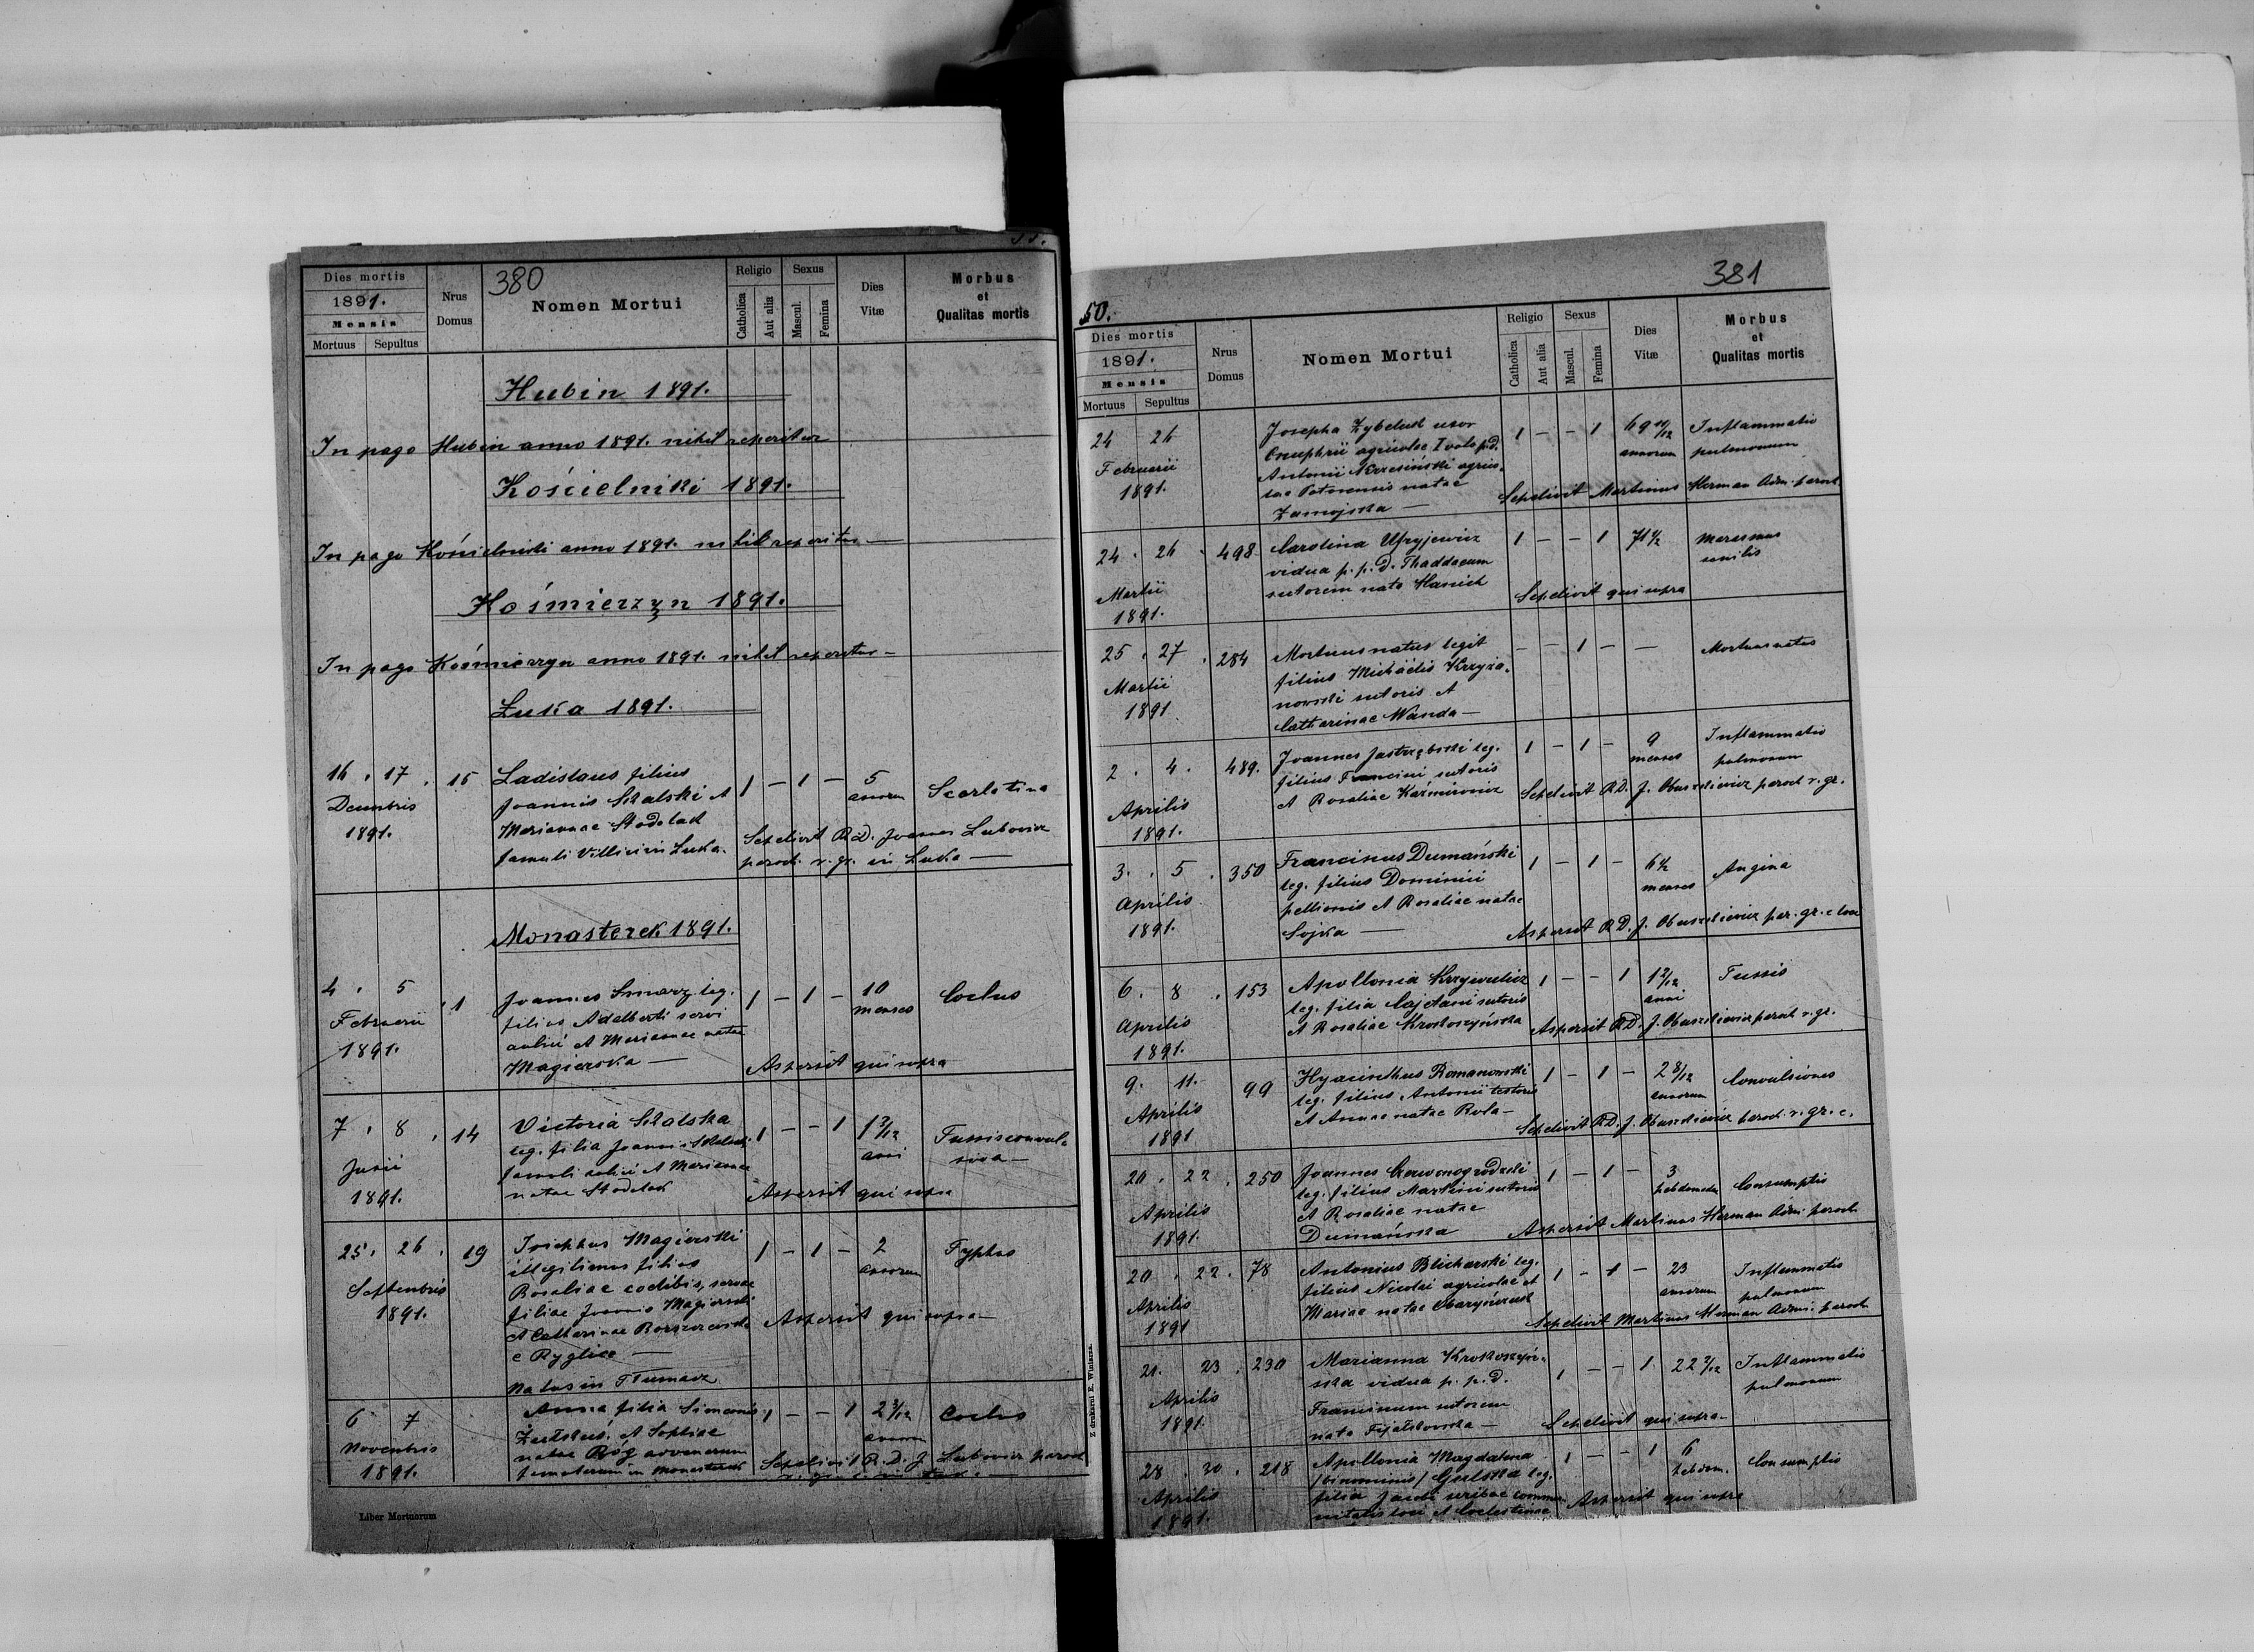 380
Dies mortis
1891.
Mensis
Mortuus Sepultus
Nrus
Domus
Nomen Mortui
Religio
Catholica
Aut alia
Sexus
Mascul.
Femina
Dies
Vitæ
Morbus
et
Qualitas mortis
Hubin 1891.
In pago Hubin anno 1891. nihil reperitur
Kościelniki 1891.
In pago Kościelniki anno 1891. nihil reperitur —
Kośmierzyn 1891.
In pago Kośmierzyn anno 1891. nihil reperitur —
Łuka 1891.
16. 17. 15 Ladislaus filius 1 — 1 — 5 Scarlatina
Decembris Joannis Skalski et annorum
1891. Mariannae Stodolak
famuli villici in Łuka.
Sepelivit R.D. Joannes Lubowicz
paroch. r. gr. in Łuka —
Monasterek 1891.
4. 5. 1 Joannes Smarz leg. 1 — 1 — 10 menses
Februarii filius Adalberti servi
1891. aulici et Mariannae natae
Magierska — Aspersit qui supra
7. 8. 14 Victoria Skalska 1 — — 1 1 3/12 anni Tussis convul-
siva —
Junii leg. filia Joannis Skalski
1891. famuli aulici et Mariannae
natae Stodolak Aspersit qui supra
25. 26. 19 Josephus Magierski 1 — 1 — 2 annorum Typhus
Septembris illegitimus filius
1891. Rosaliae coelibis, servae
filiae Joannis Magierski
et Catharinae
e Ryglice —
Aspersit qui supra —
natus in Tłumacz
6 7 Anna filia Simeonis 1 — — 1 2 3/12 annorum
Novembris et Sophiae
1891. natae Róg advenarum
famulorum in Monasterek
Sepelivit R. D. J. Lubowicz paroch.
Liber Mortuorum
Z drukarni E. Winiarza.
381
50.
Dies mortis
1891.
Mensis
Mortuus Sepultus
Nrus
Domus
Nomen Mortui
Religio
Catholica
Aut alia
Sexus
Mascul.
Femina
Dies
Vitæ
Morbus
et
Qualitas mortis
24 26 Josepha uxor 1 — — 1 69 10/12 annorum Inflammatio pulmonum
Februarii Onuphrii agricolae
1891. Antonii agrico-
lae natae
Zamojska —
Sepelivit Martinus Herman Adm. paroch.
24. 26. 498. Carolina 1 — — 1 71 1/2 Marasmus senilis
Martii vidua p. p. d. Thaddaeum
1891. sutorem nata
Sepelivit qui supra
25. 27. 284 Mortuus natus legit — — 1 — — Mortuus natus
Martii filius Michaelis Krzyża-
1891 nowski sutoris et
Catharinae Wanda —
2. 4. 489. Joannes Jastrzębski leg. 1 — 1 — 9 menses Inflammatio pulmonum
Aprilis filius Francisci sutoris
1891. et Rosaliae Kaźmirowicz
Sepelivit R.D. J. Obuszkiewicz paroch. r. gr.
3. 5. 350 Franciscus Dumański 1 — 1 — 6 1/2 menses Angina
Aprilis leg. filius Dominici
1891. pellionis et Rosaliae natae
Sojka —
Aspersit R.D. J. Obuszkiewicz par. gr. c.
6. 8. 153 Apollonia 1 — — 1 1 2/12 anni Tussis
Aprilis leg. filia Cajetani sutoris
1891. et Rosaliae Krokoszyńska
Aspersit R.D. J. Obuszkiewicz paroch. r. gr.
9. 11. 99 Hyacinthus Romanowski 1 — 1 — 2 8/12 annorum Convulsiones
Aprilis leg. filius Antonii textoris
1891 et Annae natae Rola —
Sepelivit R.D. J. Obuszkiewicz paroch. r. gr. c.
20. 22. 250 Joannes Czerwonogrodzki 1 — 1 — 3 hebdomadae Consumptio
Aprilis leg. filius Martini sutoris
1891. et Rosaliae natae
Dumańska Aspersit Martinus Herman Adm. paroch.
20. 22. 78 Antonius Blicharski leg. 1 — 1 — 23 annorum Inflammatio pulmonum
Aprilis filius Nicolai agricolae et
1891 Mariae natae
Sepelivit Martinus Herman Adm. paroch.
21. 23. 230 Marianna Krokoszyń- 1 — — 1 Inflammatio pulmonum
Aprilis ska vidua p. p. d.
1891. Franciscum sutorem
nata Fijałkowska —
Sepelivit qui supra —
28. 30. 218 Apollonia Magdalena 1 — — 1 6 hebdom. Consumptio
Aprilis /binominis/ leg.
1891. filia Jacobi scribae commu-
nitatis loci et
Aspersit qui supra